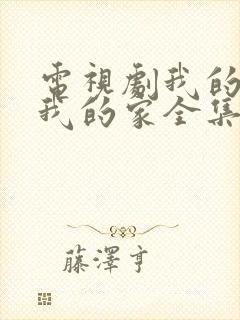 電視劇我的
我的家全集
藤澤亨